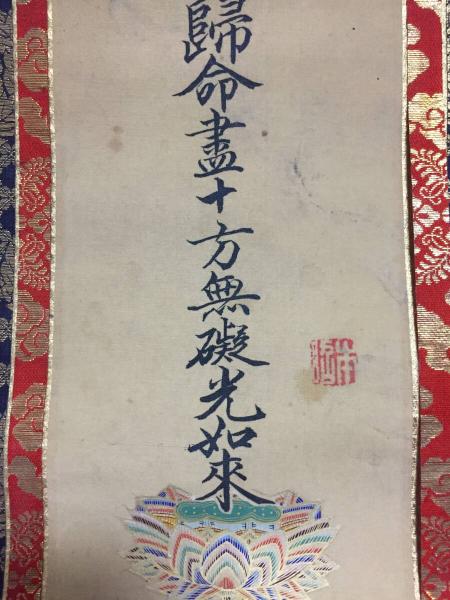 歸命盡十方無礙光如來